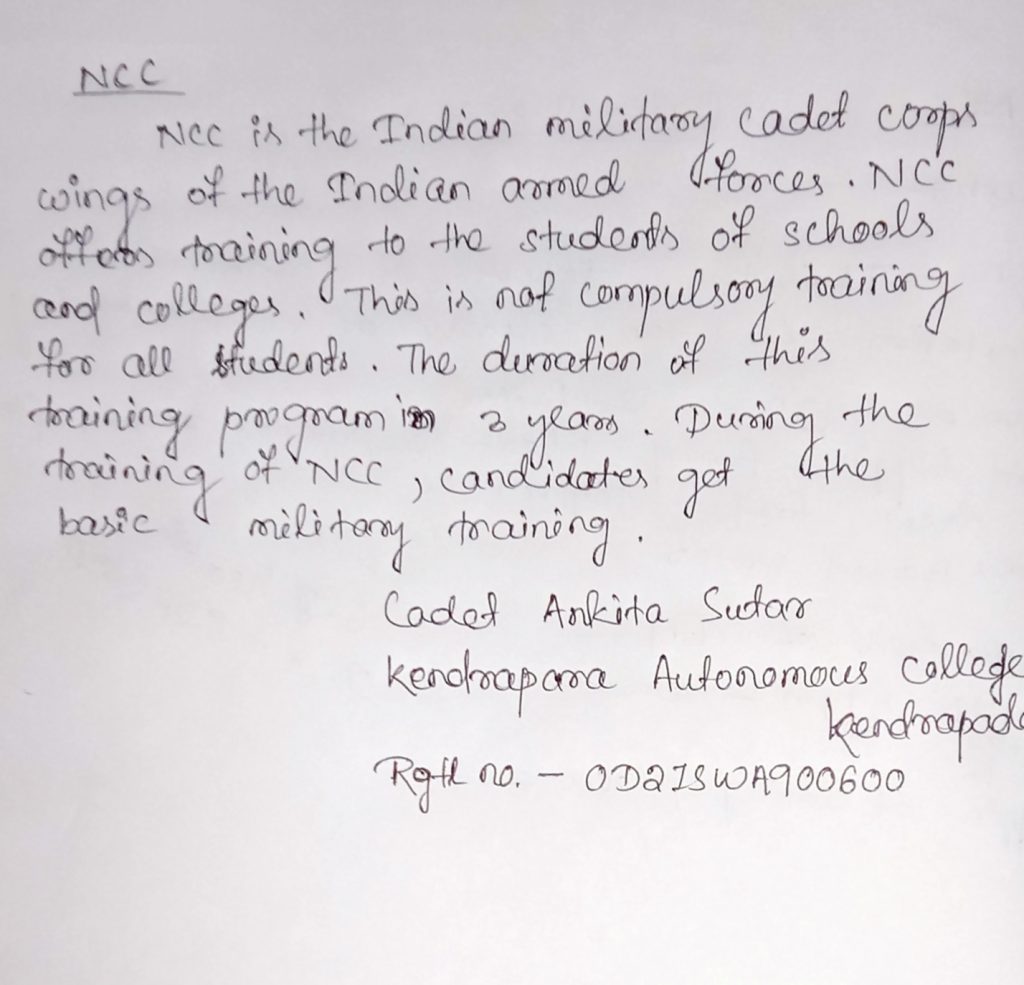 NCC
NCC is the Indian military cadet corps
wings of the Indian armed forces. NCC
offers training to the students of schools
and colleges. This is not compulsory training
for all students. The duration of this
training program is 3 years. During the
training of NCC, candidates get the
basic military training.
Cadet Ankita Sutar
Kendrapara Autonomous College
Kendrapada
Rgtl no. - OD21SWA900600